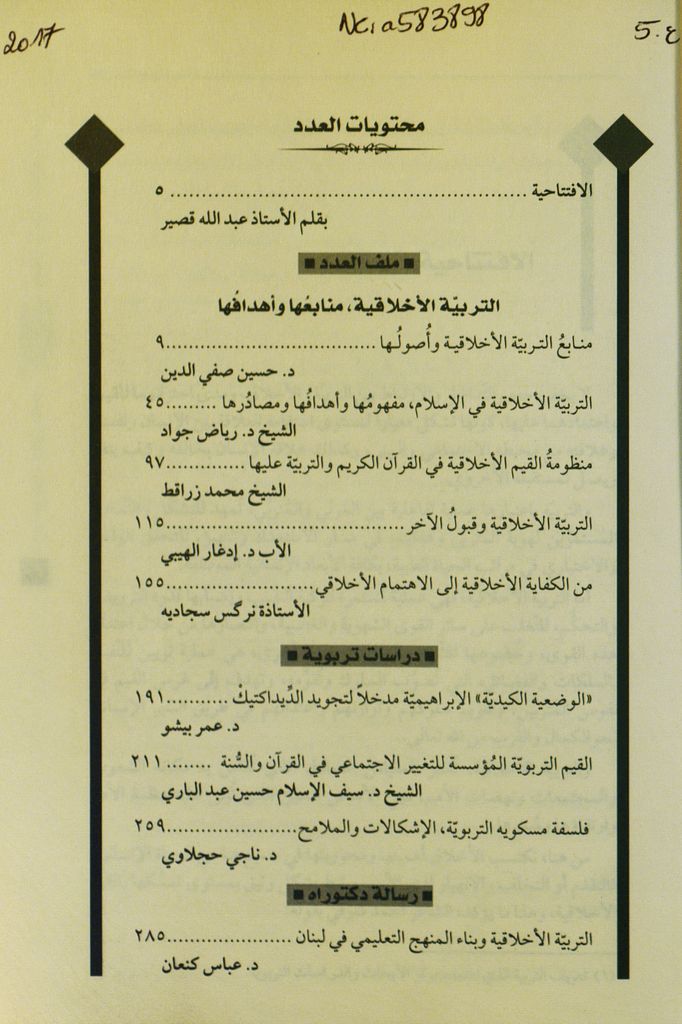 2017
Nc, a583898
5.٤
محتويات العدد
الافتتاحية ..................................................... ٥
بقلم الأستاذ عبد الله قصير
■ ملف العدد ■
التربيّة الأخلاقية، منابعُها وأهدافُها
منابعُ التربيّة الأخلاقية وأُصولُـها ...............................٩
د. حسين صفي الدين
التربيّة الأخلاقية في الإسلام، مفهومُها وأهدافُها ومصادُرها .........٤٥
الشيخ د. رياض جواد
منظومةُ القيم الأخلاقية في القرآن الكريم والتربيّة عليها .............٩٧
الشيخ محمد زراقط
التربيّة الأخلاقية وقبولُ الآخر ..................................١١٥
الأب د. إدغار الهيبي
من الكفاية الأخلاقية إلى الاهتمام الأخلاقي......................١٥٥
الأستاذة نرگس سجاديه
■ دراسات تربوية ■
«الوضعية الكيديّة» الإبراهيميّة مدخلاً لتجويد الدِّيداكتيكْ ..........١٩١
د. عمر بيشو
القيم التربويّة المُؤسسة للتغيير الاجتماعي في القرآن والسُّنة ........٢١١
الشيخ د. سيف الإسلام حسين عبد الباري
فلسفة مسكويه التربويّة، الإشكالات والملامح....................٢٥٩
د. ناجي حجلاوي
■ رسالة دكتوراه ■
التربيّة الأخلاقية وبناء المنهج التعليمي في لبنان .....................٢٨٥
د. عباس كنعان